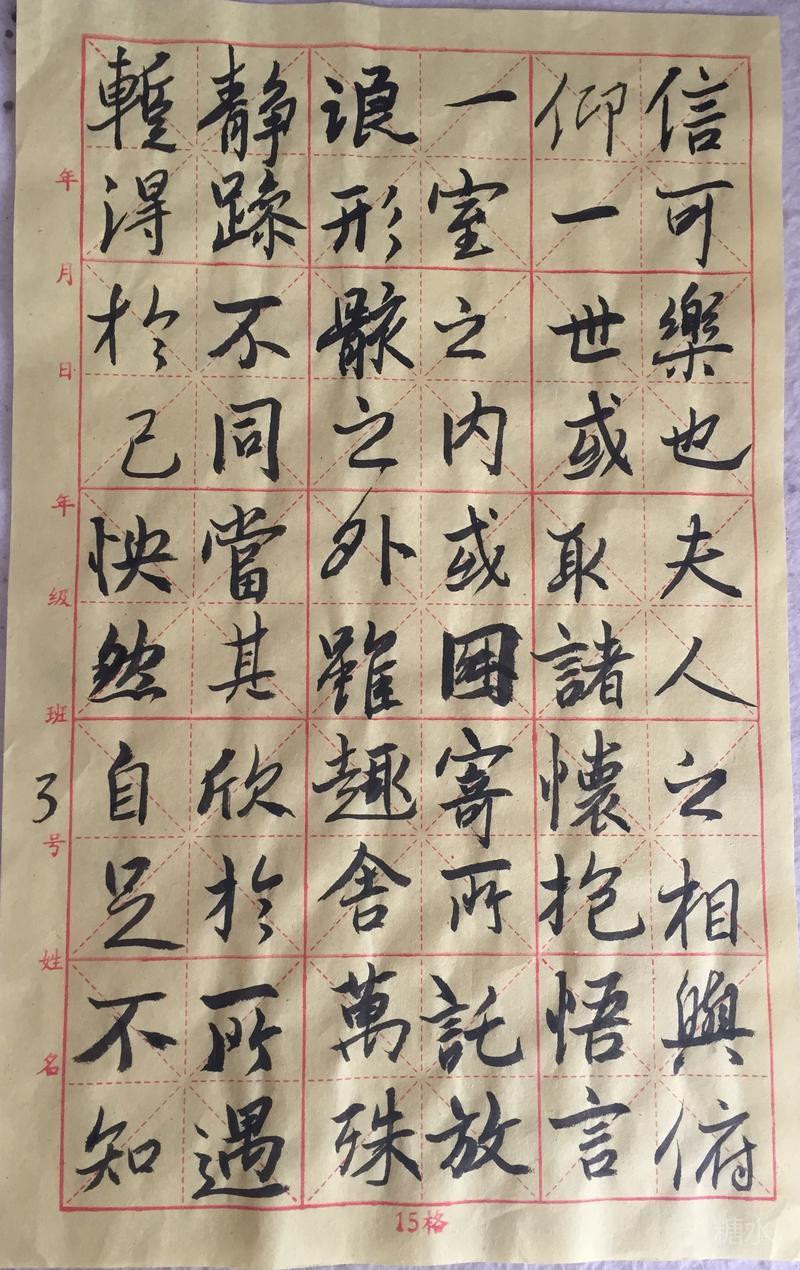 信可樂也夫人之相與俯
仰一世或取諸懷抱悟言
一室之内或因寄所託放
浪形骸之外雖趣舍萬殊
静躁不同當其欣於所遇
暫得於己怏然自足不知
年 月 日 年 级 班 3 号 姓 名
15格
糖水